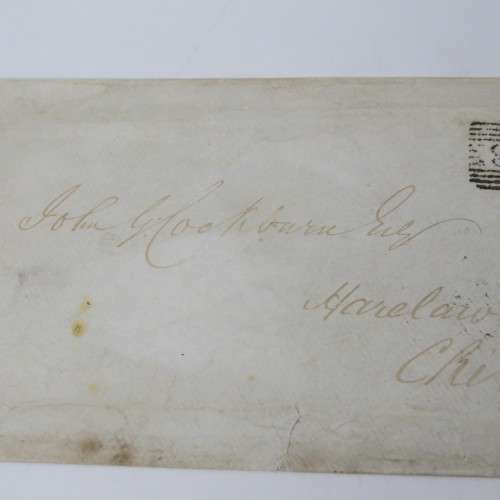 John G Cockburn Esq
Harelaw